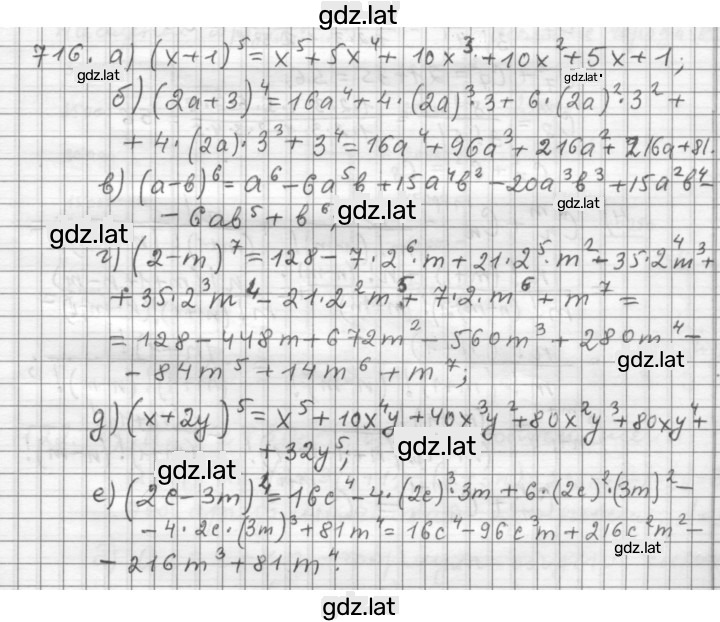 gdz.lat
716. а) (x+1)⁵ = x⁵ + 5x⁴ + 10x³ + 10x² + 5x + 1;
gdz.lat gdz.lat
б) (2a+3)⁴ = 16a⁴ + 4·(2a)³·3 + 6·(2a)²·3² +
+ 4·(2a)·3³ + 3⁴ = 16a⁴ + 96a³ + 216a² + 216a + 81.
в) (a-b)⁶ = a⁶ - 6a⁵b + 15a⁴b² - 20a³b³ + 15a²b⁴ -
gdz.lat
- 6ab⁵ + b⁶;
gdz.lat
gdz.lat
г) (2-m)⁷ = 128 - 7·2⁶·m + 21·2⁵·m² - 35·2⁴m³ +
+ 35·2³m⁴ - 21·2²m⁵ + 7·2·m⁶ + m⁷ =
= 128 - 448m + 672m² - 560m³ + 280m⁴ -
gdz.lat
- 84m⁵ + 14m⁶ + m⁷;
д) (x+2y)⁵ = x⁵ + 10x⁴y + 40x³y² + 80x²y³ + 80xy⁴ +
gdz.lat
+ 32y⁵;
gdz.lat
е) (2c-3m)⁴ = 16c⁴ - 4·(2c)³·3m + 6·(2c)²·(3m)² -
- 4·2c·(3m)³ + 81m⁴ = 16c⁴ - 96c³m + 216c²m² -
gdz.lat
- 216m³ + 81m⁴.
gdz.lat